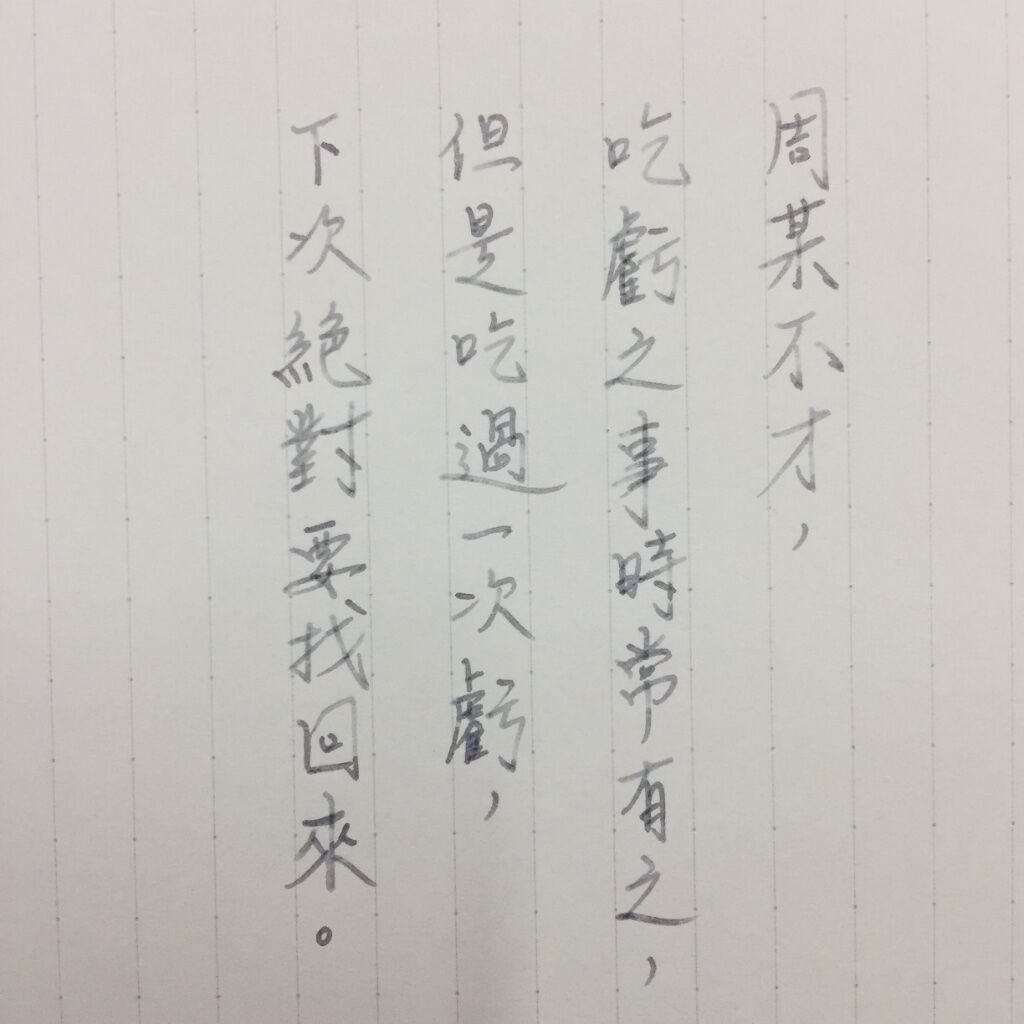 周某不才，
吃虧之事時常有之，
但是吃過一次虧，
下次絕對要找回來。